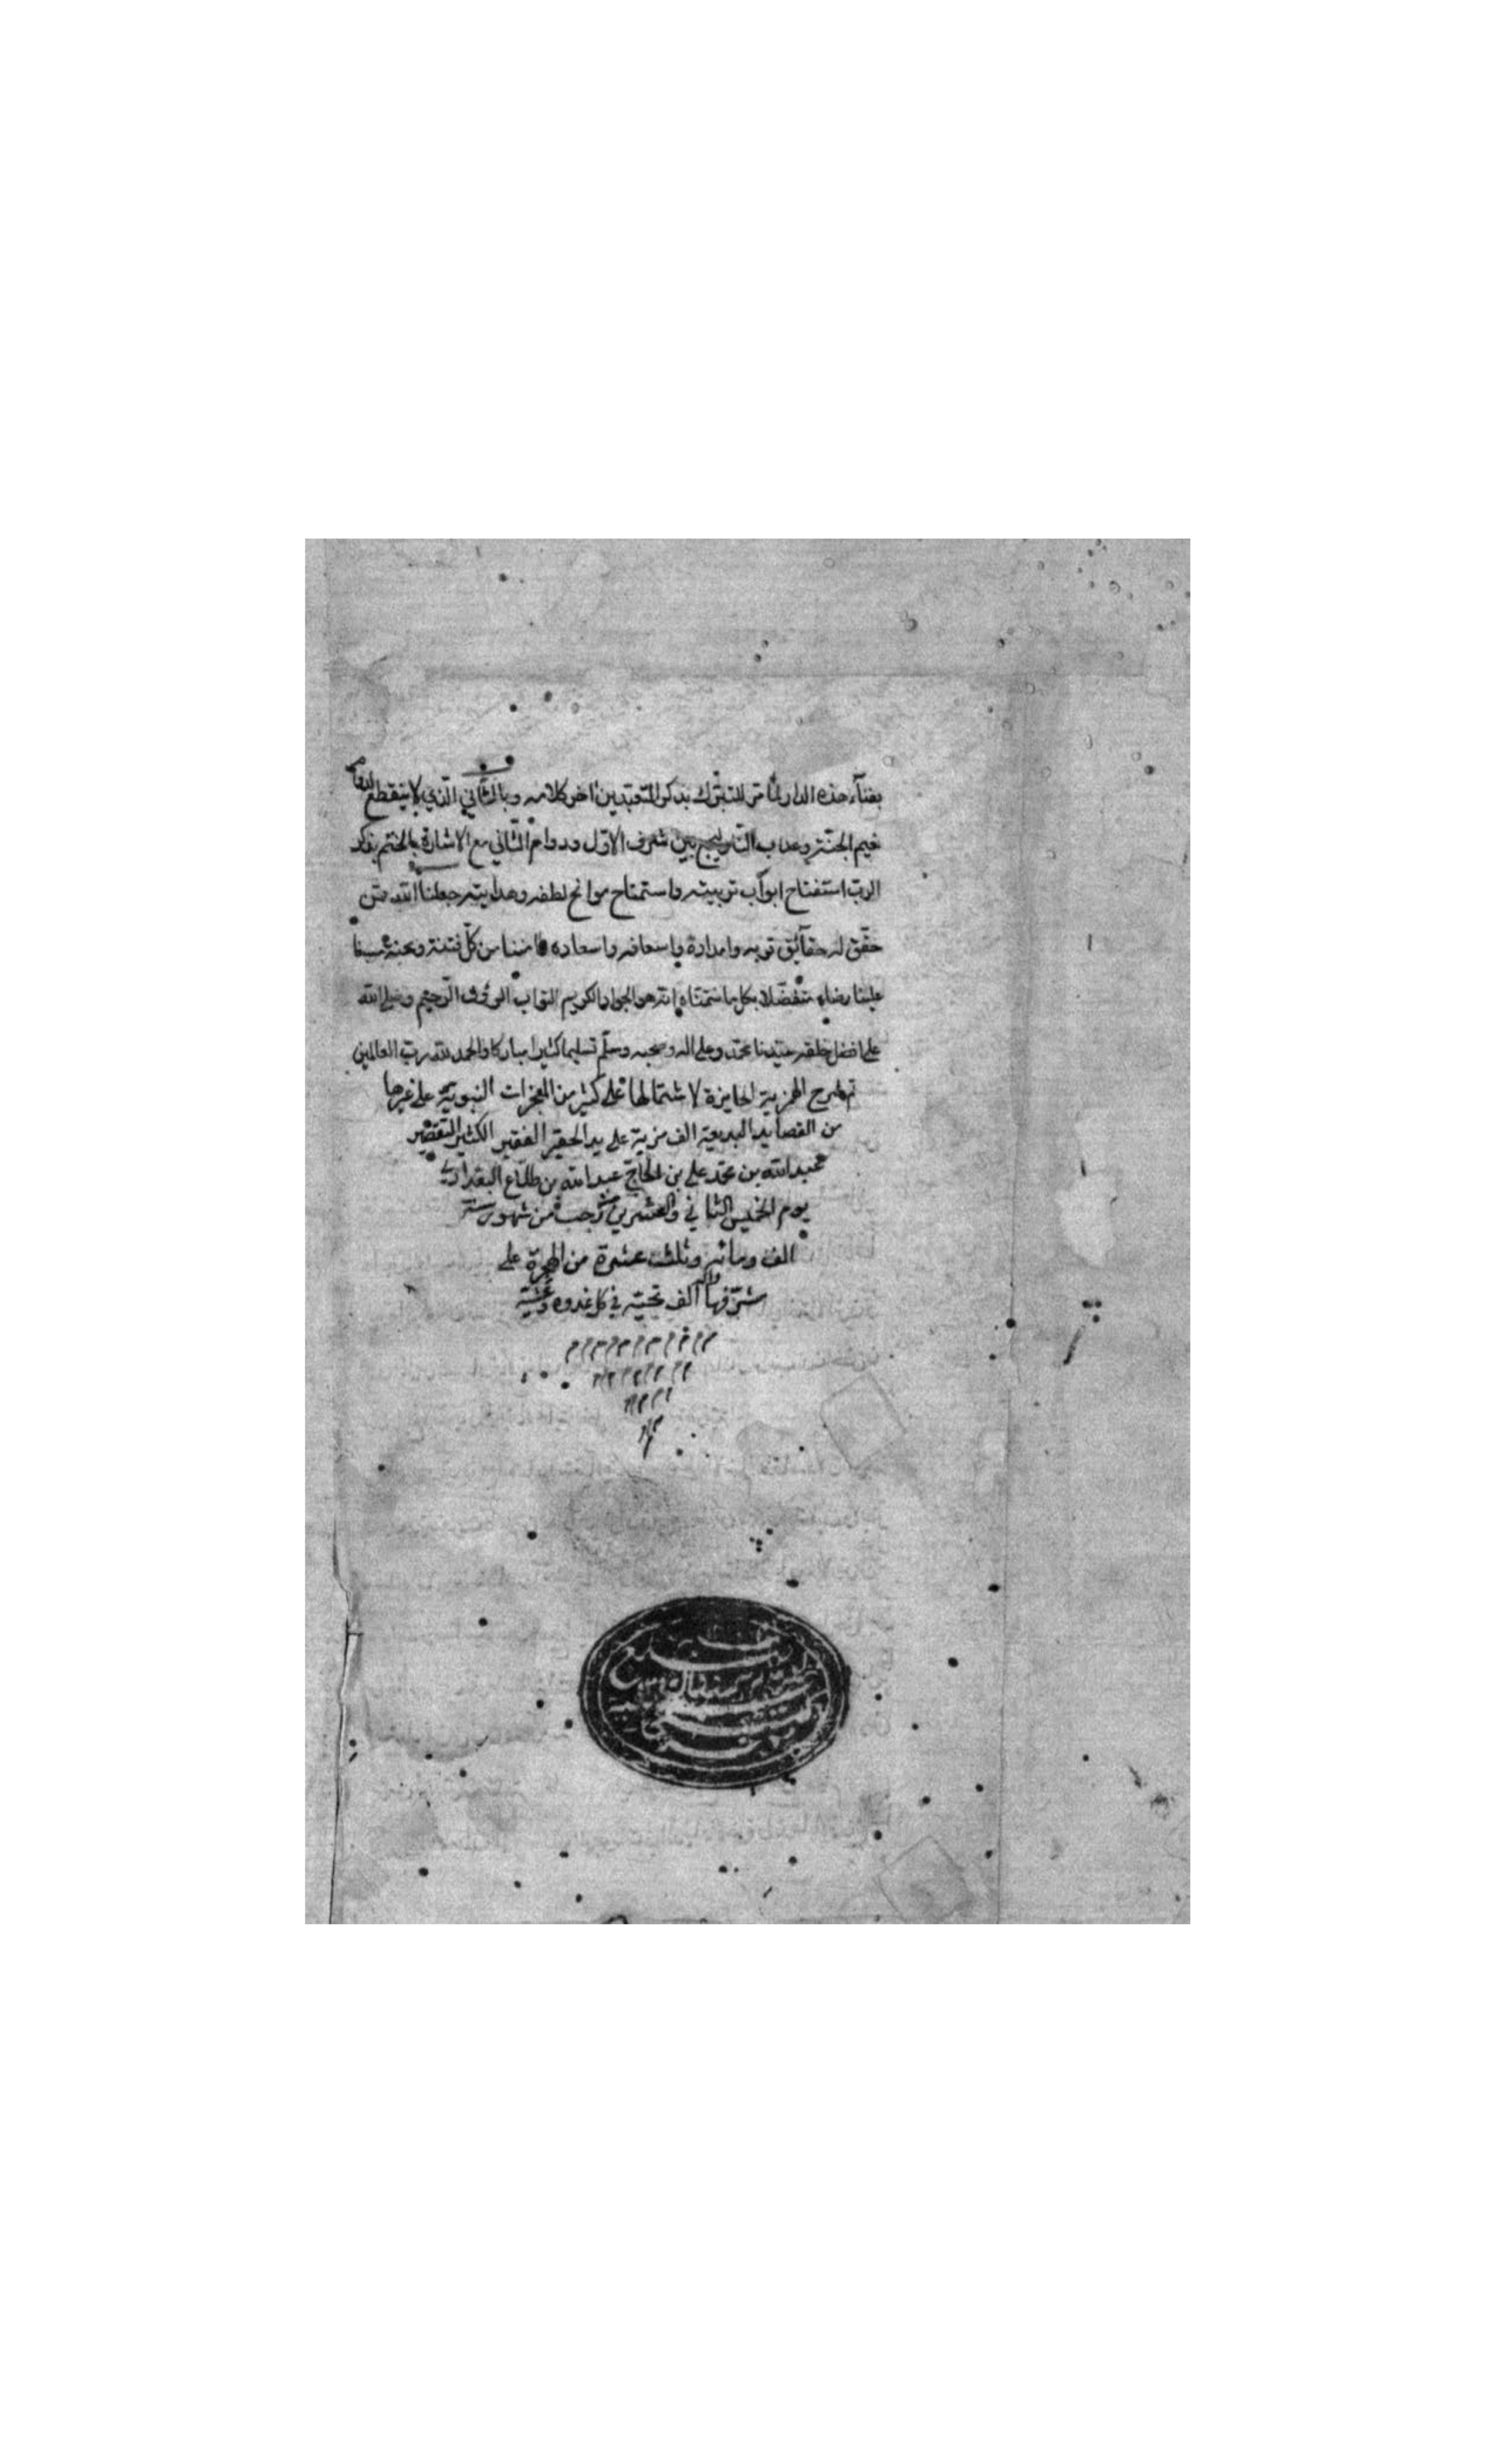 بفنآء هذه الدار لما مر للتبرك بذكر المتعبدين اخر كلامه وبالثاني الذي لا ينقطع
نعيم الجنة وعذاب النار ليجمع بين شرف الاول ودوام الثاني مع الاشارة بالختم بذكر
الرب استفتاح ابواب تربيته واستمتاح موانح لطفه وهدايته جعلنا الله ممن
حقق له حقآئق قربه وامداده واسعافه واسعاده وامننا من كل فتنة ومحنة مسبغا
علينا رضاه متفضلا بكل ما نتمناه انه هو الجواد الكريم التواب الرؤف الرحيم وصلى الله
على افضل خلقه سيدنا محمد وعلى اله وصحبه وسلم تسليما كثيرا مباركا والحمد لله رب العالمين
تم شرح الهمزية الحايزة لاشتمالها على كثير من المعجزات النبوية على غيرها
من القصايد البديعية الف مزية على يد الحقير الفقير الكثير التقصير
عبد الله بن محمد علي بن الحاج عبد الله بن طلاع البغدادي
يوم الخميس الثاني والعشرين من رجب من شهور سنة
الف ومائه وثلث عشرة من الهجرة على
مشرفها واله الف تحية في كل غدوه وعشية